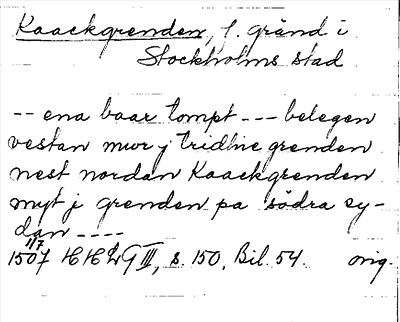 Kaackgrenden, f. gränd i
Stockholms stad
-- ena baar tompt --- belegen
vestan mur j tridhie grenden
nest nordan Kaackgrenden
myt j grenden pa södra sy-
dan ----
1/7
1507 HHLG III, s. 150, Bil. 54. orig.